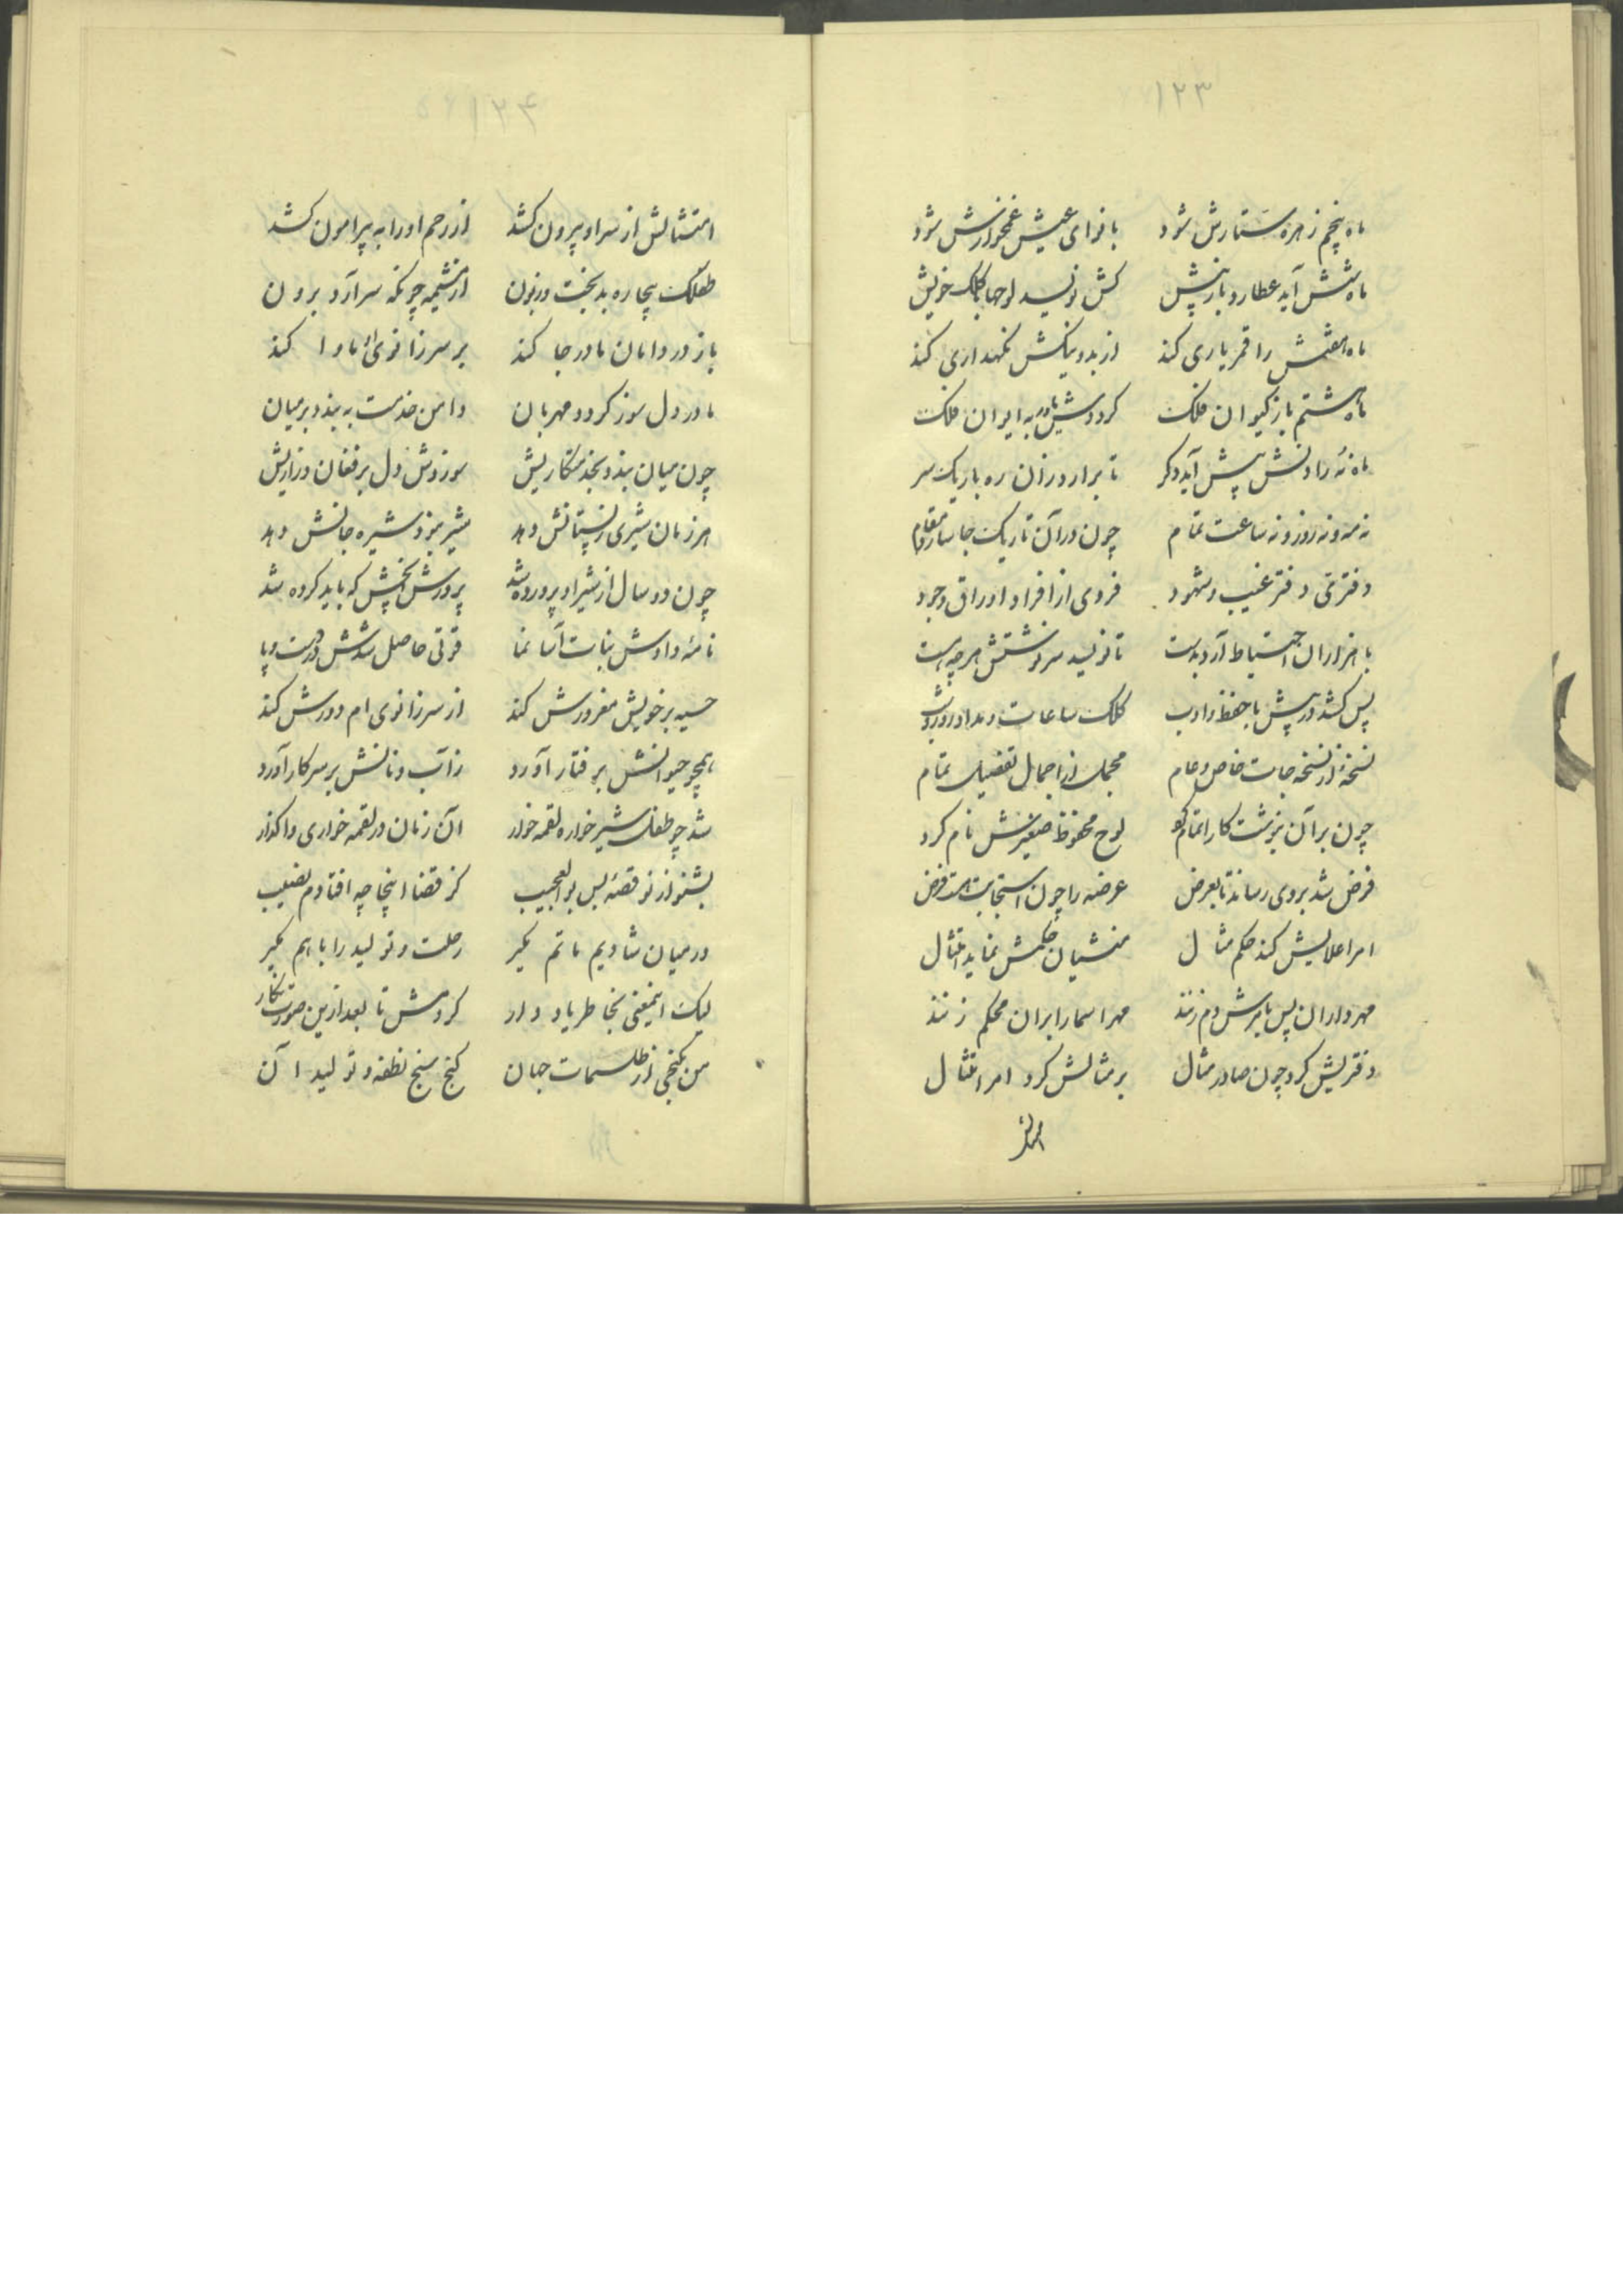 ۱۲۳
ماه پنجم زهره ستارش شود با نوای عیش غمخوارش شود
ماه شش آید عطارد باز پیش کش نویسد لوحها با کلک خویش
ماه هفتمش را قمر یاری کند از بد و نیکش نگهداری کند
ماه هشتم باز کیوان فلک گرددش یاور به ایوان فلک
ماه نه را دانش پیش آید دگر تا برارد زان ره باریک سر
نه مه و نه روز و نه ساعت تمام چون در آن تاریک جا سازد مقام
دفتری دفتر غیب و شهود فردی از افراد اوراق وجود
با هزاران احتیاط آرد بدست تا نویسد سرنوشتش هر چه هست
پس کشد در پیش با حفظ و ادب کلک ساعات و مداد روز و شب
نسخهٔ از نسخه جات خاص و عام مجمل از اجمال تفصیل تمام
چون بر آن بنوشت کار اتمام کو لوح محفوظ صغیرش نام کرد
فرض شد بروی رساند تا بعرض عرضه را چون استجابت هست فرض
امر اعلایش کند حکم مثال منشیان حکمش نماید امتثال
مهرداران پس بامرش دم زنند مهر اسما را بران محکم زنند
دفتریش کرد چون صادر مثال بر مثالش کرد امر امتثال
امتثالش
۱۲۴
امتثالش از سر او بیرون کشد از رحم او را به پیرامون کشد
طفلک بیچاره بدبخت و زبون از مشیمه چونکه سر آرد برون
باز در دامان مادر جا کند بر سر زانوی مأوا کند
مادر دلسوز گردد مهربان دامن خدمت به بندد بر میان
چون میان بندد بخدمتکاریش سوزدش دل بر فغان و زاریش
هر زمان شیری ز پستانش دهد شیر نبود شیره جانش دهد
چون دو سال از شیر او پرورده شد پرورش بخشش که باید کرده شد
نامه دادش نبات آسا نما قوتی حاصل شدش در دست و پا
حسیه بر خویش مغرورش کند از سر زانوی ام دورش کند
همچو حیوانش برفتار آورد ز آب و نانش بر سر کار آورد
شد چو طفل شیر خواره لقمه خوار آن زمان در لقمه خواری واگذار
بشنو از نو قصهٔ بس بوالعجیب کز قضا اینجا چه افتادم نصیب
در میان شادیم ماتم بگیر رحلت و تولید را با هم بگیر
لیک اینمعنی بخاطر یاد دار کردمش تا بعد ازین صورت نگار
من بگنجی از طلسمات جهان گنج سنج نطفه و تولید آن